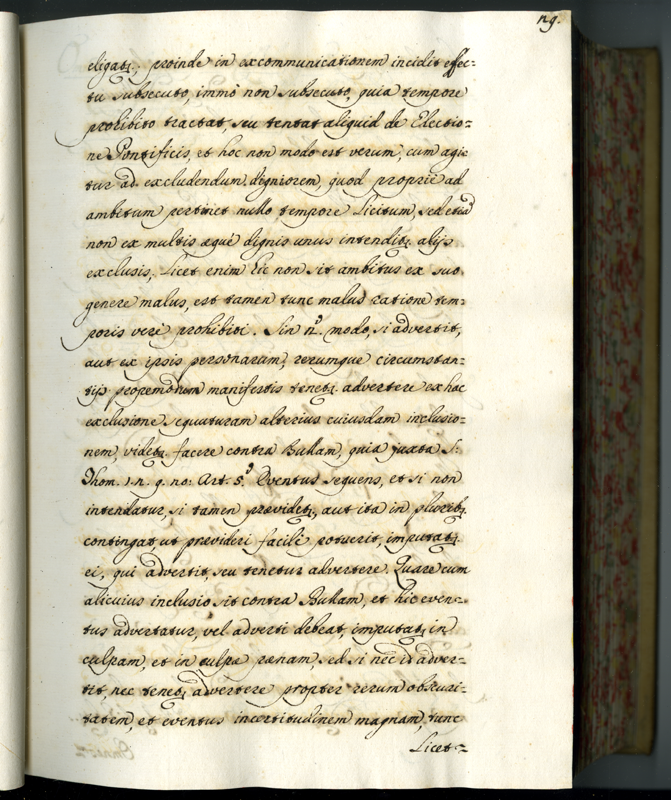 ng.
eligatz, proinde in excommunicationem incidit effec=
tu subsecuto, immo non subsecuto, quia tempore
prohibito tractat, seu tentat aliquid de Electio=
ne Pontificis, et hoc non modo est verum, cum agi=
tur ad excludendum digniorem, quod proprie ad
ambitum pertinet nullo tempore Licitum, sed etiã
non ex multis æquè dignis unus intenditz alijs
exclusis, Licet enim hic non sit ambitus ex suo
genere malus, est tamen tunc malus ratione tem=
poris vere prohibiti. Sin nº. modo, si advertit,
aut ex ipsis personarum, rerumque circumstan=
tijs manifestis tenetz advertere ex hac
exclusione sequuturam alterius cuiusdam inclusio=
nem, videtz facere contra Bullam, quia juxta S:
Thom. 1. n. q. no: Art. 5.º Eventus sequens, et si non
intendatur, si tamen prævidetz, aut ita in pluribz
contingat, ut prævideri facili potuerit, imputatz
ei, qui advertit, seu tenetur advertere. Quare cum
alicuius inclusio sit contra Bullam, et hic even=
tus advertatur, vel adverti debeat, imputatz in
culpam, et in culpæ pænam, sed si nec id adver=
tit, nec tenetz advertere propter rerum obscuri=
tatem, et eventus incertitudinem magnam, tunc
Licet=